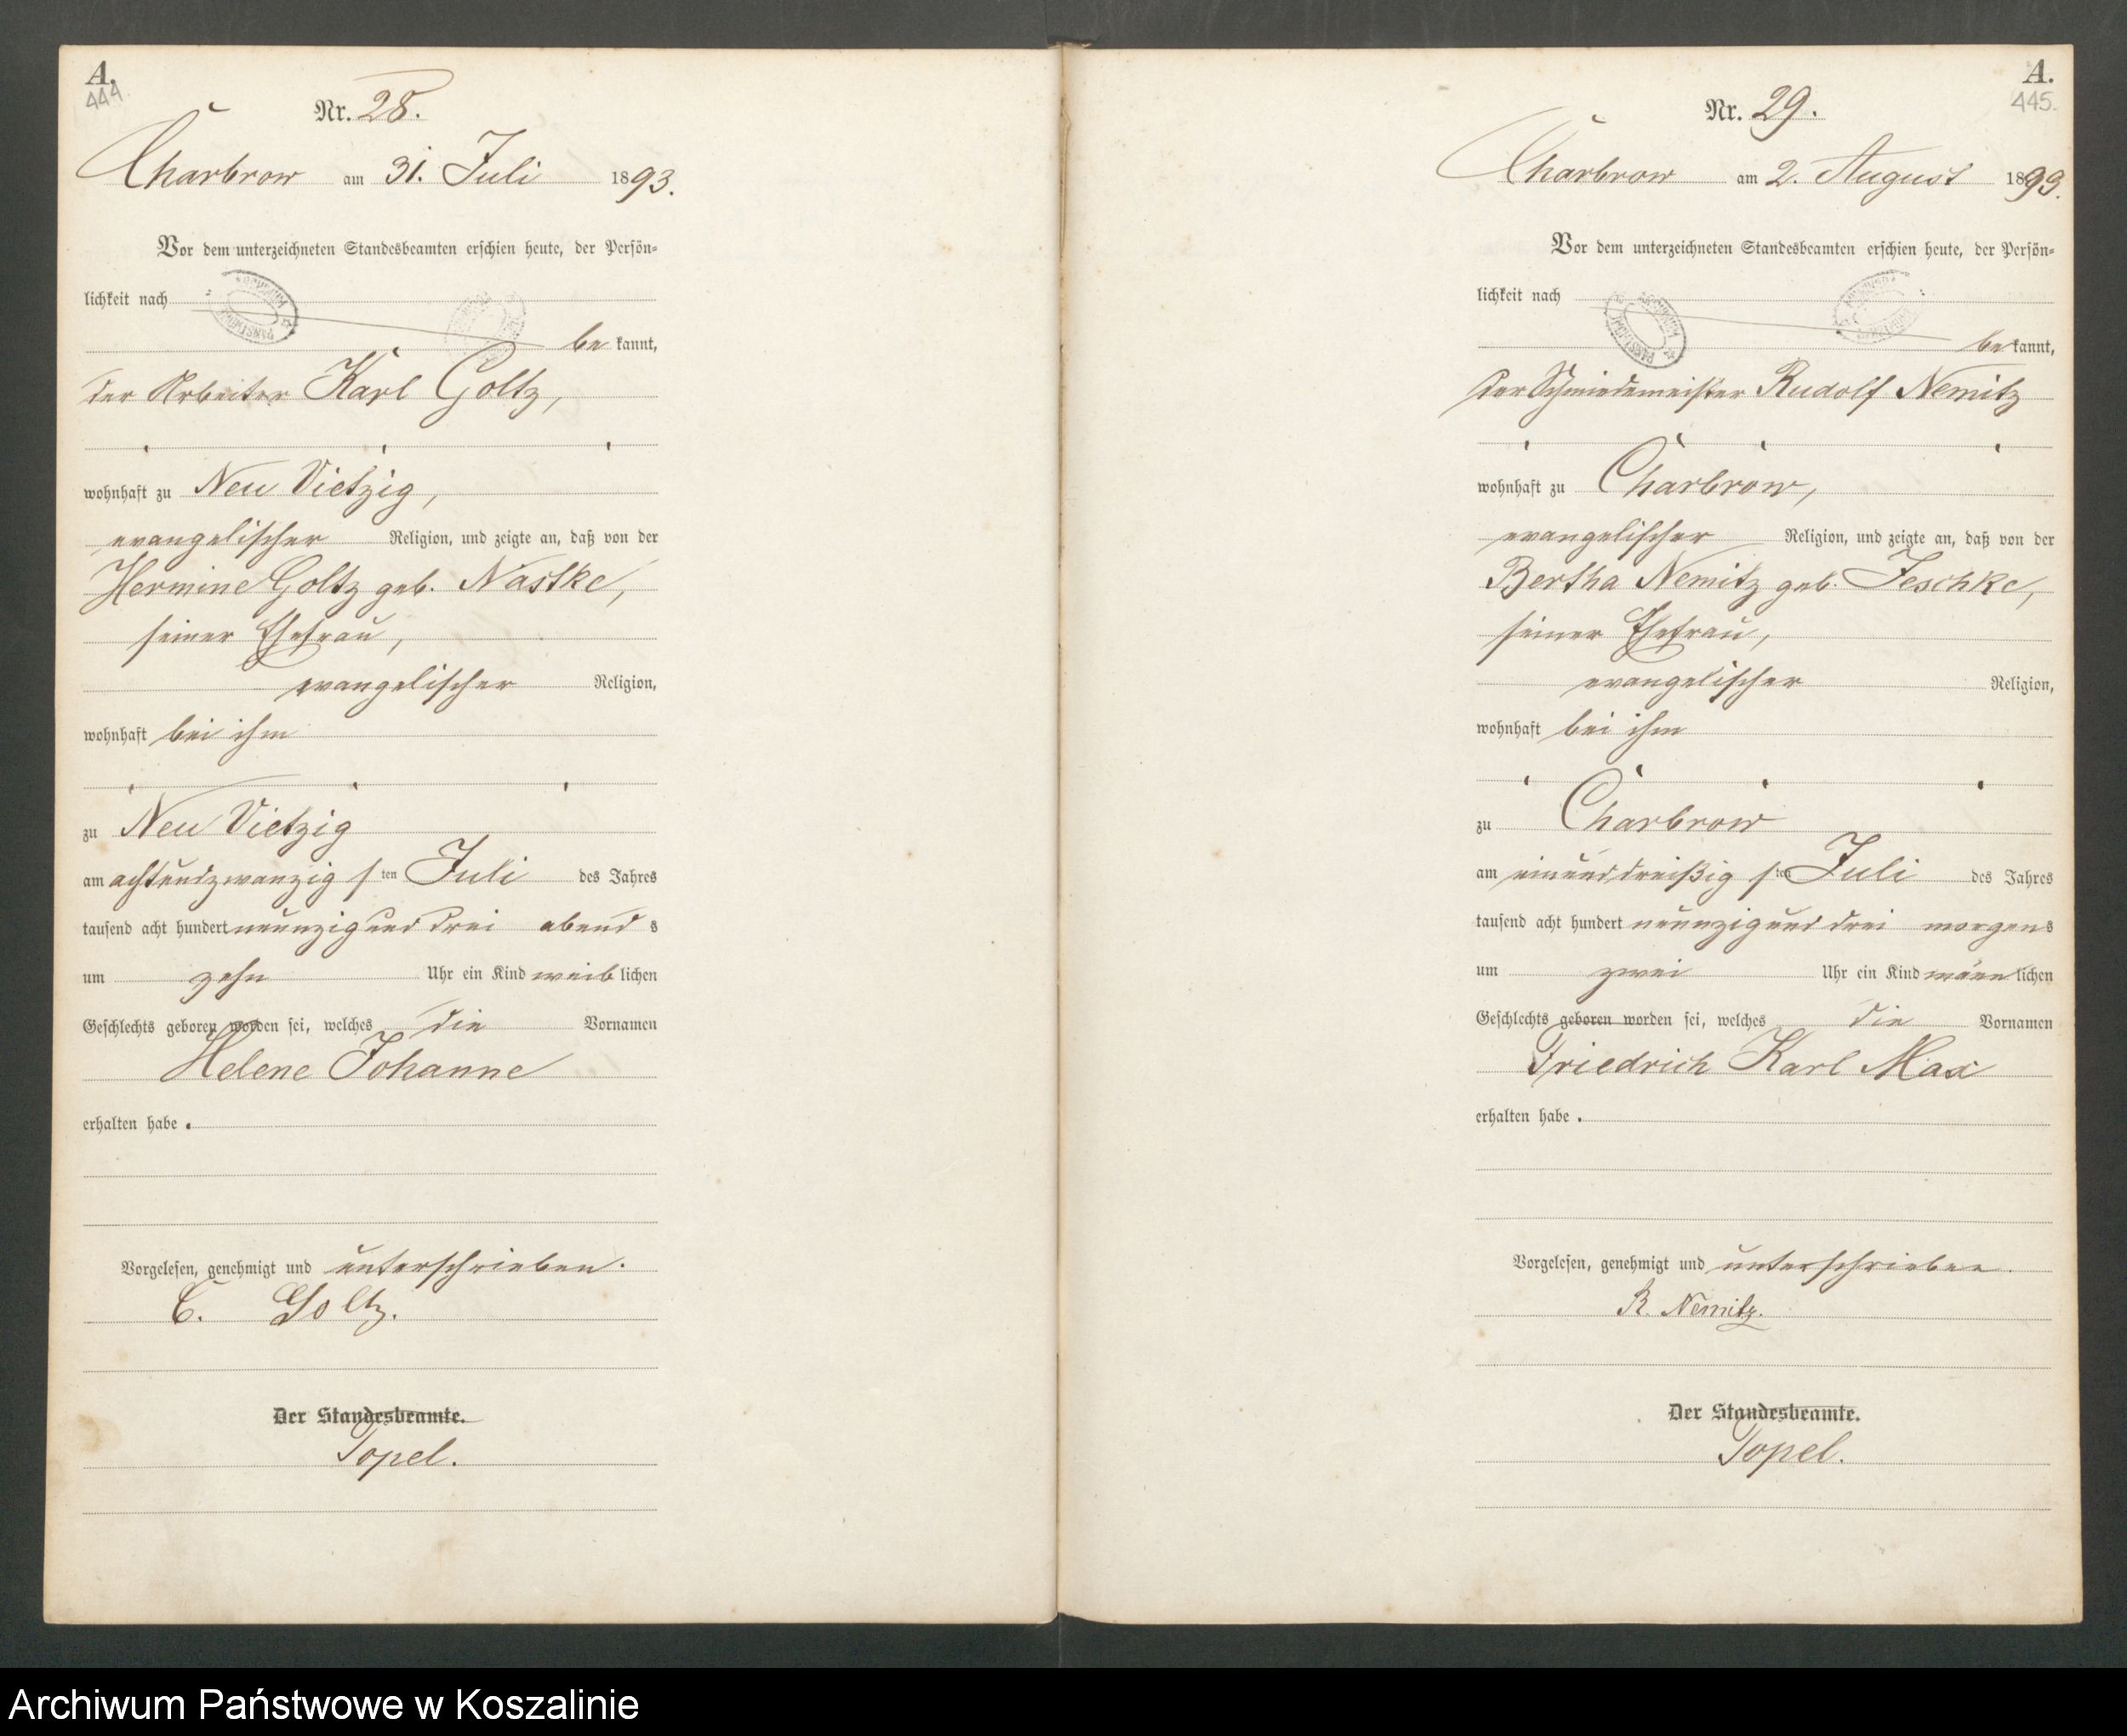 A.
444.
Nr. 28.
Charbrow am 31. Juli 1893.
Vor dem unterzeichneten Standesbeamten erschien heute, der Persön-
lichkeit nach
be kannt,
der Arbeiter Karl Goltz,
wohnhaft zu Neu Vietzig,
evangelischer Religion, und zeigte an, daß von der
Hermine Goltz geb. Nastke,
seiner Ehefrau,
evangelischer Religion,
wohnhaft bei ihm
zu Neu Vietzig
am achtundzwanzigsten Juli des Jahres
tausend acht hundert neunzig und drei abends
um zehn Uhr ein Kind weiblichen
Geschlechts geboren worden sei, welches die Vornamen
Helene Johanne
erhalten habe.
Vorgelesen, genehmigt und unterschrieben.
C. Goltz.
Der Standesbeamte.
Topel.
A.
445.
Nr. 29.
Charbrow am 2. August 1893.
Vor dem unterzeichneten Standesbeamten erschien heute, der Persön-
lichkeit nach
be kannt,
der Schmiedemeister Rudolf Nemitz
wohnhaft zu Charbrow,
evangelischer Religion, und zeigte an, daß von der
Bertha Nemitz geb. Jeschke,
seiner Ehefrau,
evangelischer Religion,
wohnhaft bei ihm
zu Charbrow
am einunddreißigsten Juli des Jahres
tausend acht hundert neunzig und drei morgens
um zwei Uhr ein Kind männlichen
Geschlechts geboren worden sei, welches die Vornamen
Friedrich Karl Max
erhalten habe.
Vorgelesen, genehmigt und unterschrieben.
R. Nemitz.
Der Standesbeamte.
Topel.
Archiwum Państwowe w Koszalinie